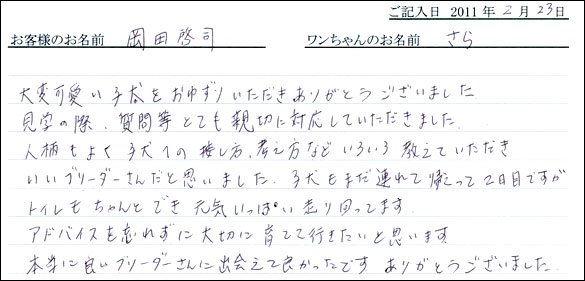 ご記入日 2011年2月23日
お客様のお名前 岡田啓司 ワンちゃんのお名前 さら
大変可愛い子犬をおゆずりいただきありがとうございました
見学の際、質問等とても親切に対応していただきました。
人柄もよく子犬への接し方、考え方などいろいろ教えていただき
いいブリーダーさんだと思いました。子犬もまだ連れて帰って2日目ですが
トイレもちゃんとでき元気いっぱい走り回ってます。
アドバイスを忘れずに大切に育てて行きたいと思います。
本当に良いブリーダーさんに出会えて良かったです ありがとうございました。